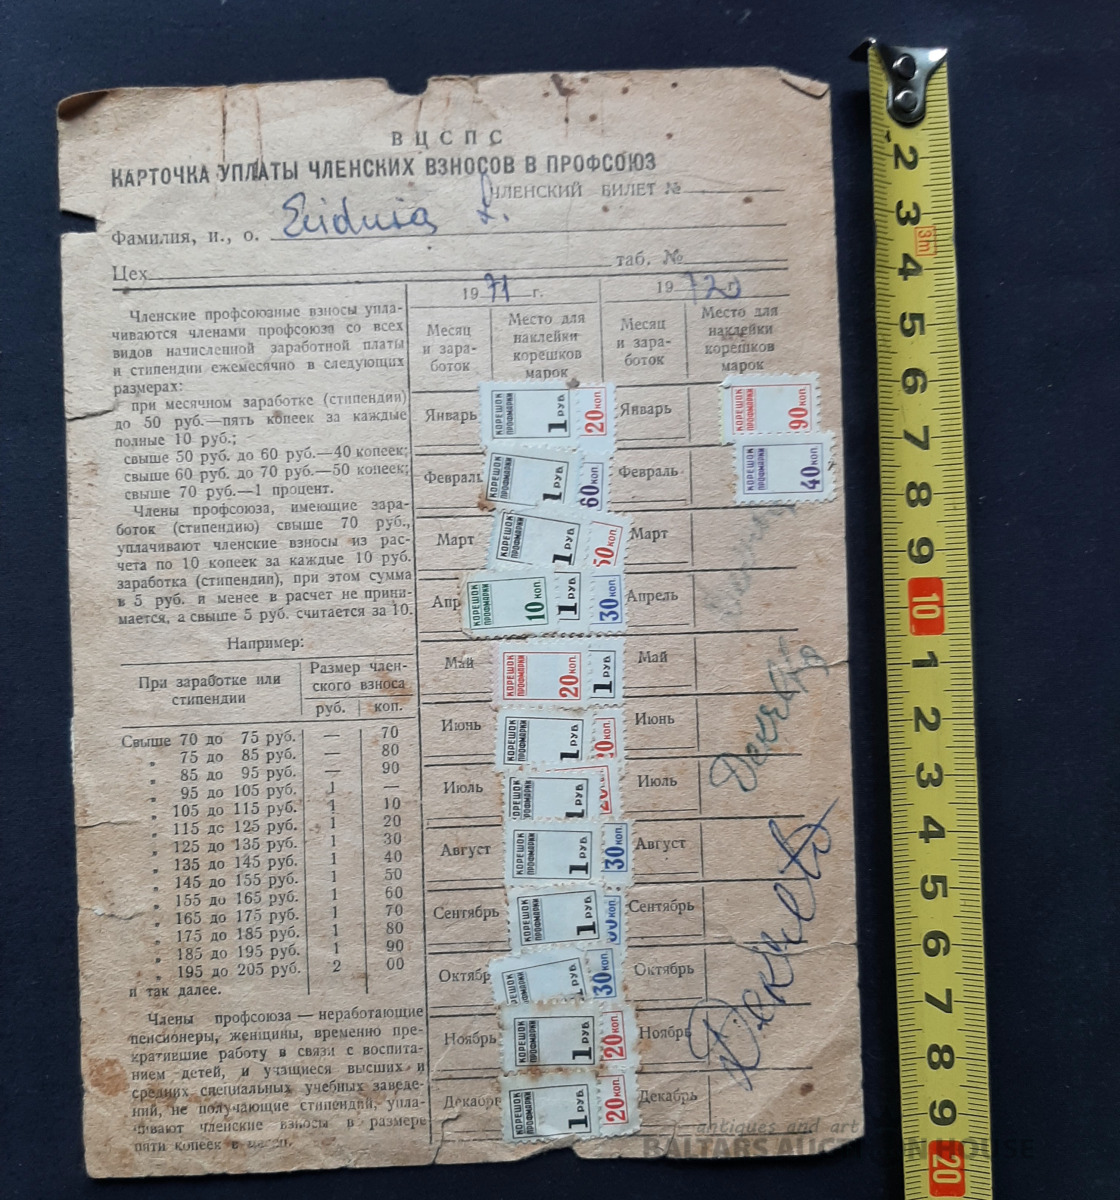 ВЦСПС
КАРТОЧКА УПЛАТЫ ЧЛЕНСКИХ ВЗНОСОВ В ПРОФСОЮЗ
ЧЛЕНСКИЙ БИЛЕТ №
Фамилия, и., о.
Цех таб. №
Членские профсоюзные взносы упла-
чиваются членами профсоюза со всех
видов начисленной заработной платы
и стипендии ежемесячно в следующих
размерах:
при месячном заработке (стипендии)
до 50 руб.—пять копеек за каждые
полные 10 руб.;
свыше 50 руб. до 60 руб.—40 копеек;
свыше 60 руб. до 70 руб.—50 копеек;
свыше 70 руб.—1 процент.
Члены профсоюза, имеющие зара-
боток (стипендию) свыше 70 руб.,
уплачивают членские взносы из рас-
чета по 10 копеек за каждые 10 руб.
заработка (стипендии), при этом сумма
в 5 руб. и менее в расчет не прини-
мается, а свыше 5 руб. считается за 10.
Например:
При заработке или
стипендии
Размер член-
ского взноса
руб. коп.
Свыше 70 до 75 руб. — 70
" 75 до 85 руб. — 80
" 85 до 95 руб. — 90
" 95 до 105 руб. 1 —
" 105 до 115 руб. 1 10
" 115 до 125 руб. 1 20
" 125 до 135 руб. 1 30
" 135 до 145 руб. 1 40
" 145 до 155 руб. 1 50
" 155 до 165 руб. 1 60
" 165 до 175 руб. 1 70
" 175 до 185 руб. 1 80
" 185 до 195 руб. 1 90
" 195 до 205 руб. 2 00
и так далее.
Члены профсоюза — неработающие
пенсионеры, женщины, временно пре-
кратившие работу в связи с воспита-
нием детей, и учащиеся высших и
средних специальных учебных заведе-
ний, не получающие стипендий, упла-
чивают членские взносы в размере
пяти копеек в месяц.
1971 г.
Месяц
и зара-
боток
Место для
наклейки
корешков
марок
Январь КОРЕШОК ПРОФМАРКИ 1 РУБ. 20 коп.
Феврал КОРЕШОК ПРОФМАРКИ 1 РУБ. 60 коп.
Март КОРЕШОК ПРОФМАРКИ 1 РУБ. 50 коп.
Апр КОРЕШОК ПРОФМАРКИ 10 коп. 1 РУБ. 30 коп.
Май КОРЕШОК ПРОФМАРКИ 20 коп. 1 РУБ.
Июнь КОРЕШОК ПРОФМАРКИ 1 РУБ. коп.
Июль КОРЕШОК ПРОФМАРКИ 1 РУБ.
Август КОРЕШОК ПРОФМАРКИ 1 РУБ. 30 коп.
Сентябрь КОРЕШОК ПРОФМАРКИ 1 РУБ. коп.
Октябр КОРЕШОК ПРОФМАРКИ 1 РУБ. 30 коп.
Ноябрь КОРЕШОК ПРОФМАРКИ 1 РУБ. 20 коп.
Декабрь КОРЕШОК ПРОФМАРКИ 1 РУБ. 20 коп.
1972 г.
Месяц
и зара-
боток
Место для
наклейки
корешков
марок
Январь КОРЕШОК ПРОФМАРКИ 90 коп.
Февраль КОРЕШОК ПРОФМАРКИ 40 коп.
Март
Апрель
Май
Июнь
Июль
Август
Сентябрь
Октябрь
Ноябрь
Декабрь
2 3 3m 4 5 6 7 8 9 10 1 2 3 4 5 6 7 8 9 20
antiques and art
BALTARS AUCTION HOUSE